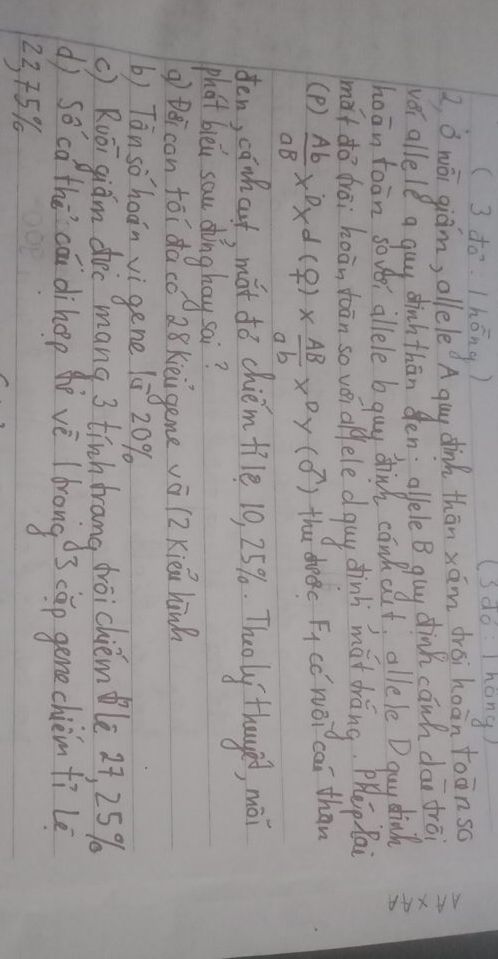 ( 3 đỏ : 1 hồng)
(3 đỏ : 1 hồng)
AA x AA
2, Ở ruồi giấm, allele A quy định thân xám trội hoàn toàn so
với allele a quy định thân đen; allele B quy định cánh dài trội
hoàn toàn so với allele b quy định cánh cụt, allele D quy định
mắt đỏ trội hoàn toàn so với allele d quy định mắt trắng. Phép lai
(P) Ab/aB X^D X^d (♀) x AB/ab X^D Y (♂) thu được F1 có ruồi cái thân
đen, cánh cụt, mắt đỏ chiếm tỉ lệ 10,25%. Theo lý thuyết, mỗi
phát biểu sau đúng hay sai?
a) Đời con tối đa có 28 kiểu gene và 12 kiểu hình
b) Tần số hoán vị gene là 20%
c) Ruồi giấm đực mang 3 tính trạng trội chiếm tỉ lệ 27,25%
d) Số cá thể cái dị hợp tử về 1 trong 3 cặp gene chiếm tỉ lệ
22,75%